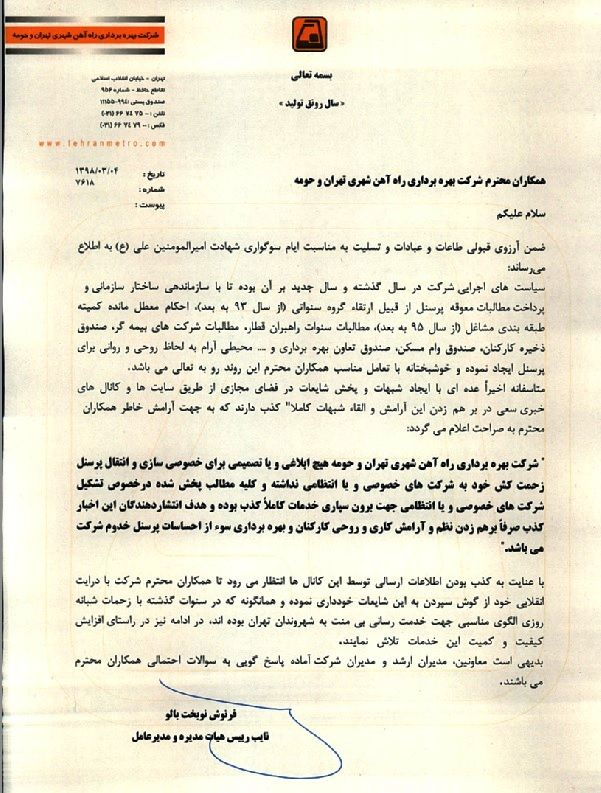 شرکت بهره برداری راه آهن شهری تهران و حومه
بسمه تعالی
« سال رونق تولید »
تهران - خیابان انقلاب اسلامی
تقاطع حافظ - شماره ۹۵۶
صندوق پستی ۹۹۴۱-۱۱۱۵۵
تلفن : ۰ - ۳۵ ۷۴ ۶۶ (۰۲۱)
فکس : ۰ - ۷۹ ۷۴ ۶۶ (۰۲۱)
www.tehranmetro.com
تاریخ : ۱۳۹۸/۰۳/۰۴
شماره : ۷۶۱۸
پیوست :
همکاران محترم شرکت بهره برداری راه آهن شهری تهران و حومه
سلام علیکم
ضمن آرزوی قبولی طاعات و عبادات و تسلیت به مناسبت ایام سوگواری شهادت امیرالمومنین علی (ع) به اطلاع
می‌رساند:
سیاست های اجرایی شرکت در سال گذشته و سال جدید بر آن بوده تا با سازماندهی ساختار سازمانی و
پرداخت مطالبات معوقه پرسنل از قبیل ارتقاء گروه سنواتی (از سال ۹۳ به بعد)، احکام معطل مانده کمیته
طبقه بندی مشاغل (از سال ۹۵ به بعد)، مطالبات سنوات راهبران قطار، مطالبات شرکت های بیمه گر، صندوق
ذخیره کارکنان، صندوق وام مسکن، صندوق تعاون بهره برداری و .... محیطی آرام به لحاظ روحی و روانی برای
پرسنل ایجاد نموده و خوشبختانه با تعامل مناسب همکاران محترم این روند رو به تعالی می باشد.
متاسفانه اخیراً عده ای با ایجاد شبهات و پخش شایعات در فضای مجازی از طریق سایت ها و کانال های
خبری سعی در بر هم زدن این آرامش و القاء شبهات کاملا" کذب دارند که به جهت آرامش خاطر همکاران
محترم به صراحت اعلام می گردد:
" شرکت بهره برداری راه آهن شهری تهران و حومه هیچ ابلاغی و یا تصمیمی برای خصوصی سازی و انتقال پرسنل
زحمت کش خود به شرکت های خصوصی و یا انتظامی نداشته و کلیه مطالب پخش شده درخصوص تشکیل
شرکت های خصوصی و یا انتظامی جهت برون سپاری خدمات کاملاً کذب بوده و هدف انتشاردهندگان این اخبار
کذب صرفاً برهم زدن نظم و آرامش کاری و روحی کارکنان و بهره برداری سوء از احساسات پرسنل خدوم شرکت
می باشد."
با عنایت به کذب بودن اطلاعات ارسالی توسط این کانال ها انتظار می رود تا همکاران محترم شرکت با درایت
انقلابی خود از گوش سپردن به این شایعات خودداری نموده و همانگونه که در سنوات گذشته با زحمات شبانه
روزی الگوی مناسبی جهت خدمت رسانی بی منت به شهروندان تهران بوده اند، در ادامه نیز در راستای افزایش
کیفیت و کمیت این خدمات تلاش نمایند.
بدیهی است معاونین، مدیران ارشد و مدیران شرکت آماده پاسخ گویی به سوالات احتمالی همکاران محترم
می باشند.
فرنوش نوبخت بالو
نایب رییس هیات مدیره و مدیرعامل